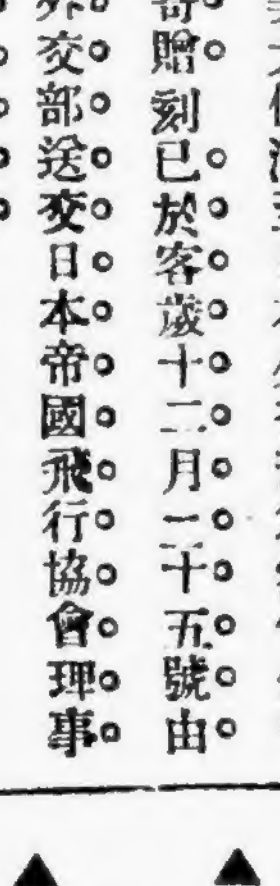 寄贈刻已於客歲十二月二十五號由
外交部送交日本帝國飛行協會理事